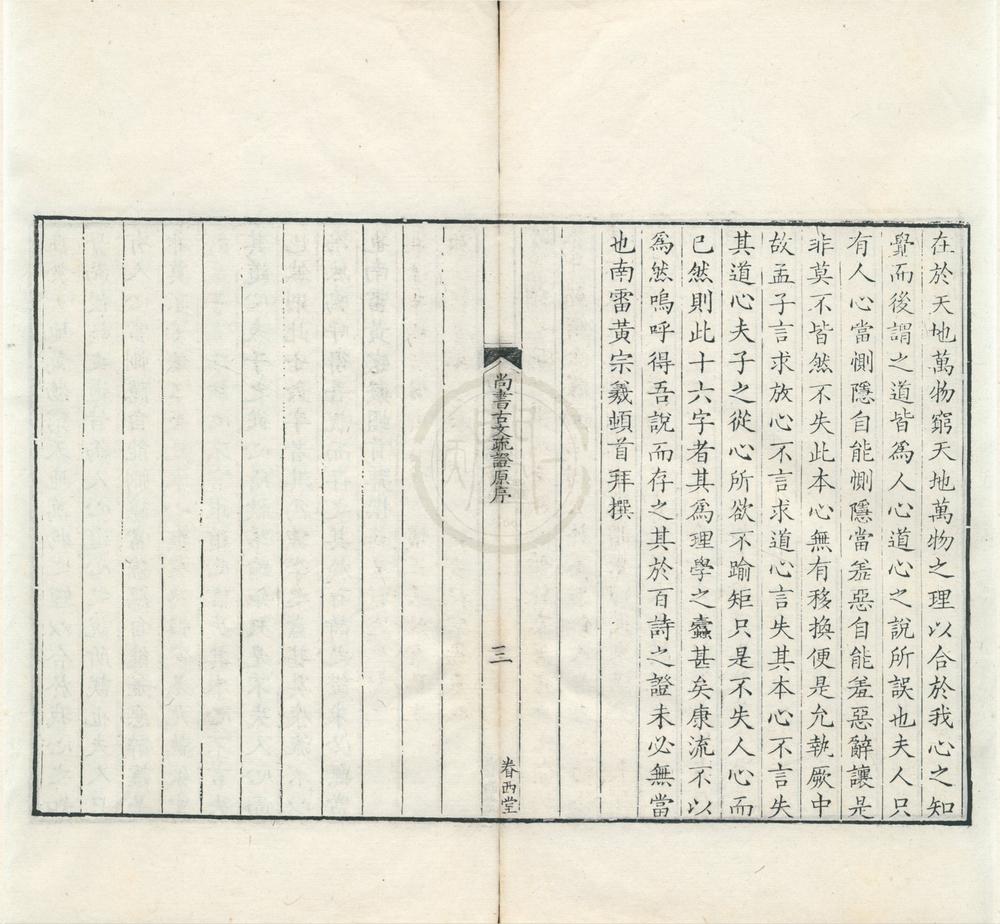 在於天地萬物窮天地萬物之理以合於我心之知
覺而後謂之道皆爲人心道心之說所誤也夫人只
有人心當惻隱自能惻隱當羞惡自能羞惡辭讓是
非莫不皆然不失此本心無有移換便是允執厥中
故孟子言求放心不言求道心言失其本心不言失
其道心夫子之從心所欲不踰矩只是不失人心而
已然則此十六字者其爲理學之蠹甚矣康流不以
爲然嗚呼得吾說而存之其於百詩之證未必無當
也南雷黃宗羲頓首拜撰
尚書古文疏證原序
三
眷西堂